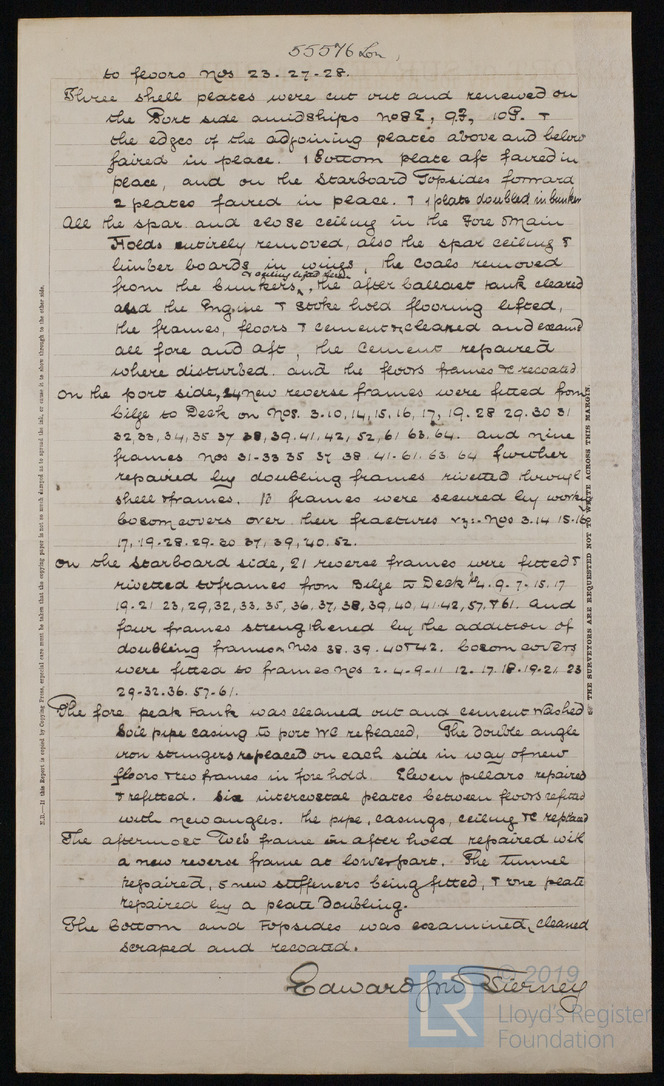 55576 Lon,
to floors Nos 23. 27-28.
Three shell plates were cut out and renewed on
the Port side amidships No 8E, 9F, 10P. +
the edges of the adjoining plates above and below
faired in place. 1 Bottom plate aft faired in
place, and on the Starboard Topsides forward
2 plates faired in place. + 1 plate doubled in bunker
All the spar and close ceiling in the Fore Main
Holds entirely removed, also the spar ceiling &
limber boards in wings, the coals removed
& ceiling lifted
from the bunkers, the after ballast tank cleared
and the Engine & Stoke hold flooring lifted,
the frames, floors & cement cleaned and examd
all fore and aft, the Cement repaired
where disturbed. and the floors frames &c recoated
On the port side, 24 new reverse frames were fitted from
bilge to Deck on Nos. 3. 10, 14, 15, 16, 17, 19. 28 29. 30 31
32, 33, 34, 35 37 38, 39, 41. 42, 52, 61 63. 64. and nine
frames Nos 31-33 35 37 38 41. 61. 63. 64 further
repaired by doubling frames rivetted through
shell & frames. frames were secured by
bosom covers over their fractures viz:- Nos 3. 14 15. 16
17, 19. 28. 29. 30 37, 39, 40. 52.
On the Starboard side, 21 reverse frames were fitted &
rivetted to frames from Bilge to Deck 4. 9. 7. 15. 17
19. 21 23, 29, 32, 33. 35, 36, 37, 38, 39, 40, 41. 42, 57, & 61. and
four frames strengthened by the addition of
doubling frames Nos 38. 39. 40 & 42. bosom covers
were fitted to frames Nos 2. 4. 9. 11 12. 17. 18. 19. 21 23
29. 32. 36. 57. 61.
The fore peak Tank was cleaned out and cement washed
Soil pipe casing to port WC replaced, The double angle
iron stringers replaced on each side in way of new
floors & rev frames in fore hold. Eleven pillars repaired
& refitted. Six intercostal plates between floors refitted
with new angles. the pipe, casings, ceiling &c replaced
The aftermost Web frame in after hold repaired with
a new reverse frame at lower part. The tunnel
repaired, 5 new stiffeners being fitted, & one plate
repaired by a plate doubling.
The bottom and Topsides was examined, cleaned
scraped and recoated.
Edward Jno Tierney
N.B.—If this Report is copied by Copying Press, especial care must be taken that the copying paper is not so much damped as to spread the ink, or cause it to show through to the other side.
THE SURVEYORS ARE REQUESTED NOT TO WRITE ACROSS THIS MARGIN.
LR
© 2019
Lloyd's Register
Foundation